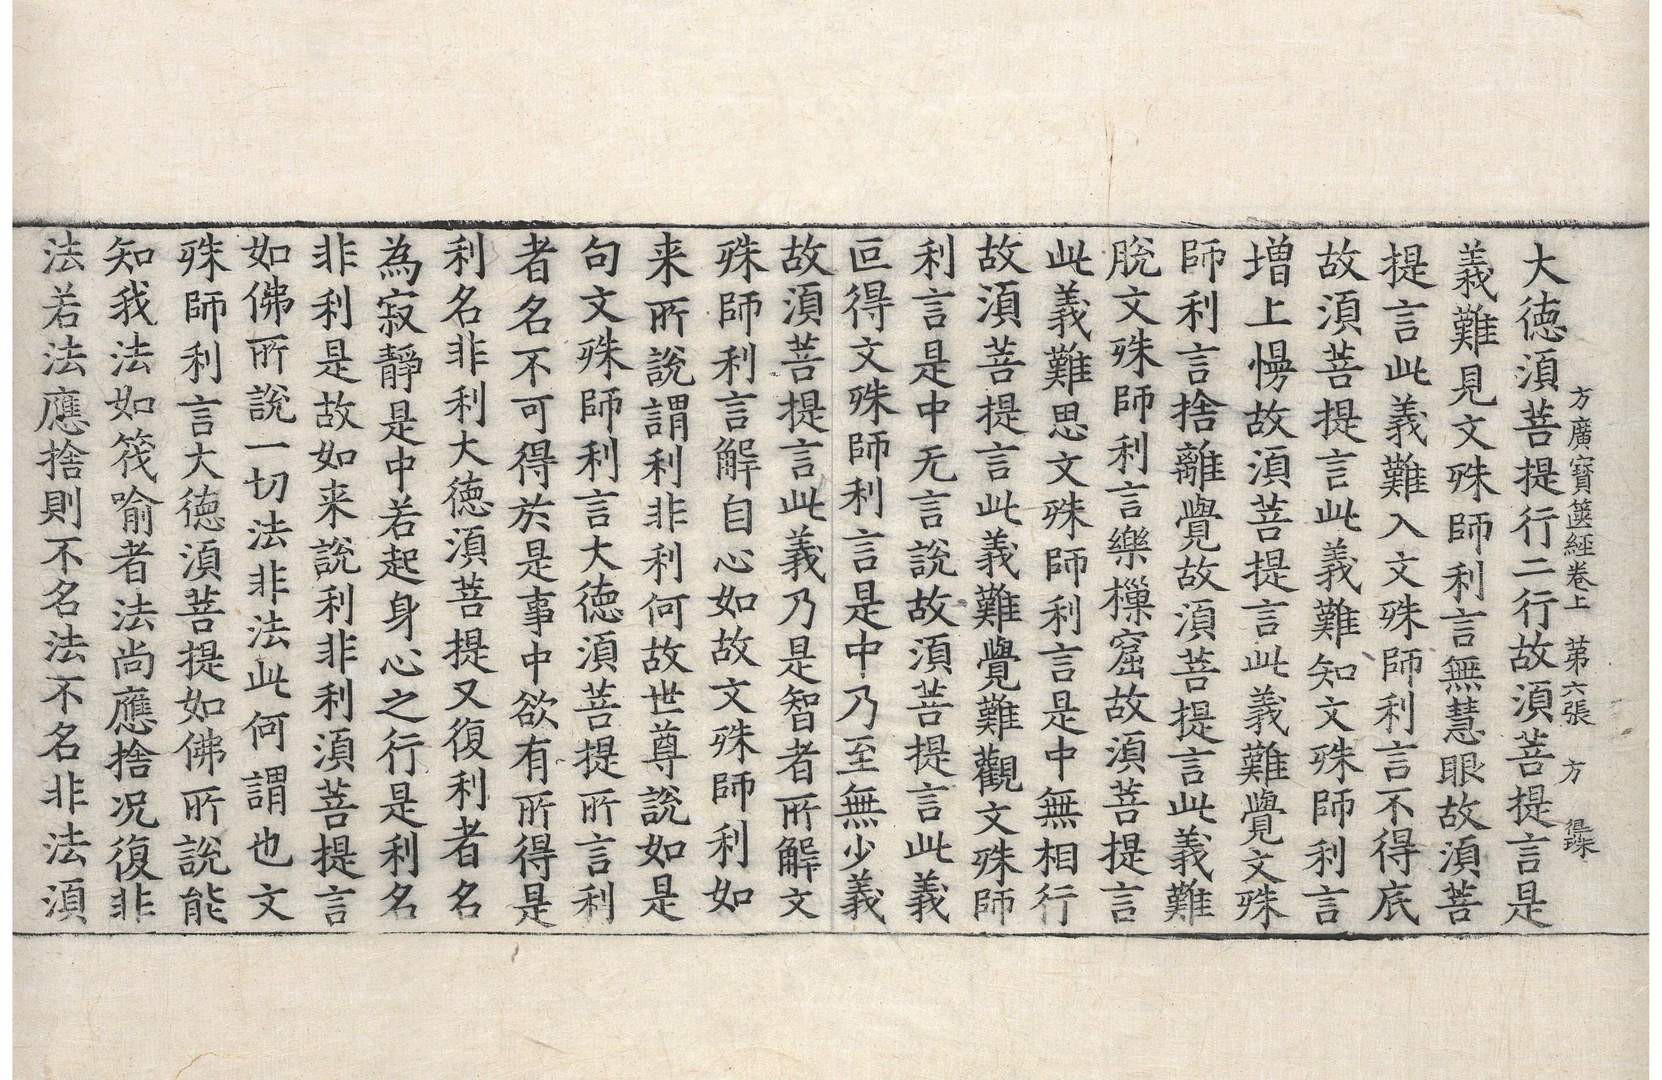 方廣寶篋經卷上 第六張 方
大德湏菩提行二行故湏菩提言是
義難見文殊師利言無慧眼故湏菩
提言此義難入文殊師利言不得底
故湏菩提言此義難知文殊師利言
增上慢故湏菩提言此義難覺文殊
師利言捨離覺故湏菩提言此義難
脫文殊師利言樂樔窟故湏菩提言
此義難思文殊師利言是中無相行
故湏菩提言此義難覺難觀文殊師
利言是中无言說故湏菩提言此義
叵得文殊師利言是中乃至無少義
故湏菩提言此義乃是智者所解文
殊師利言解自心如故文殊師利如
来所說謂利非利何故世尊說如是
句文殊師利言大德湏菩提所言利
者名不可得於是事中欲有所得是
利名非利大德湏菩提又復利者名
為寂靜是中若起身心之行是利名
非利是故如来說利非利湏菩提言
如佛所說一切法非法此何謂也文
殊師利言大德湏菩提如佛所說能
知我法如筏喻者法尚應捨况復非
法若法應捨則不名法不名非法湏